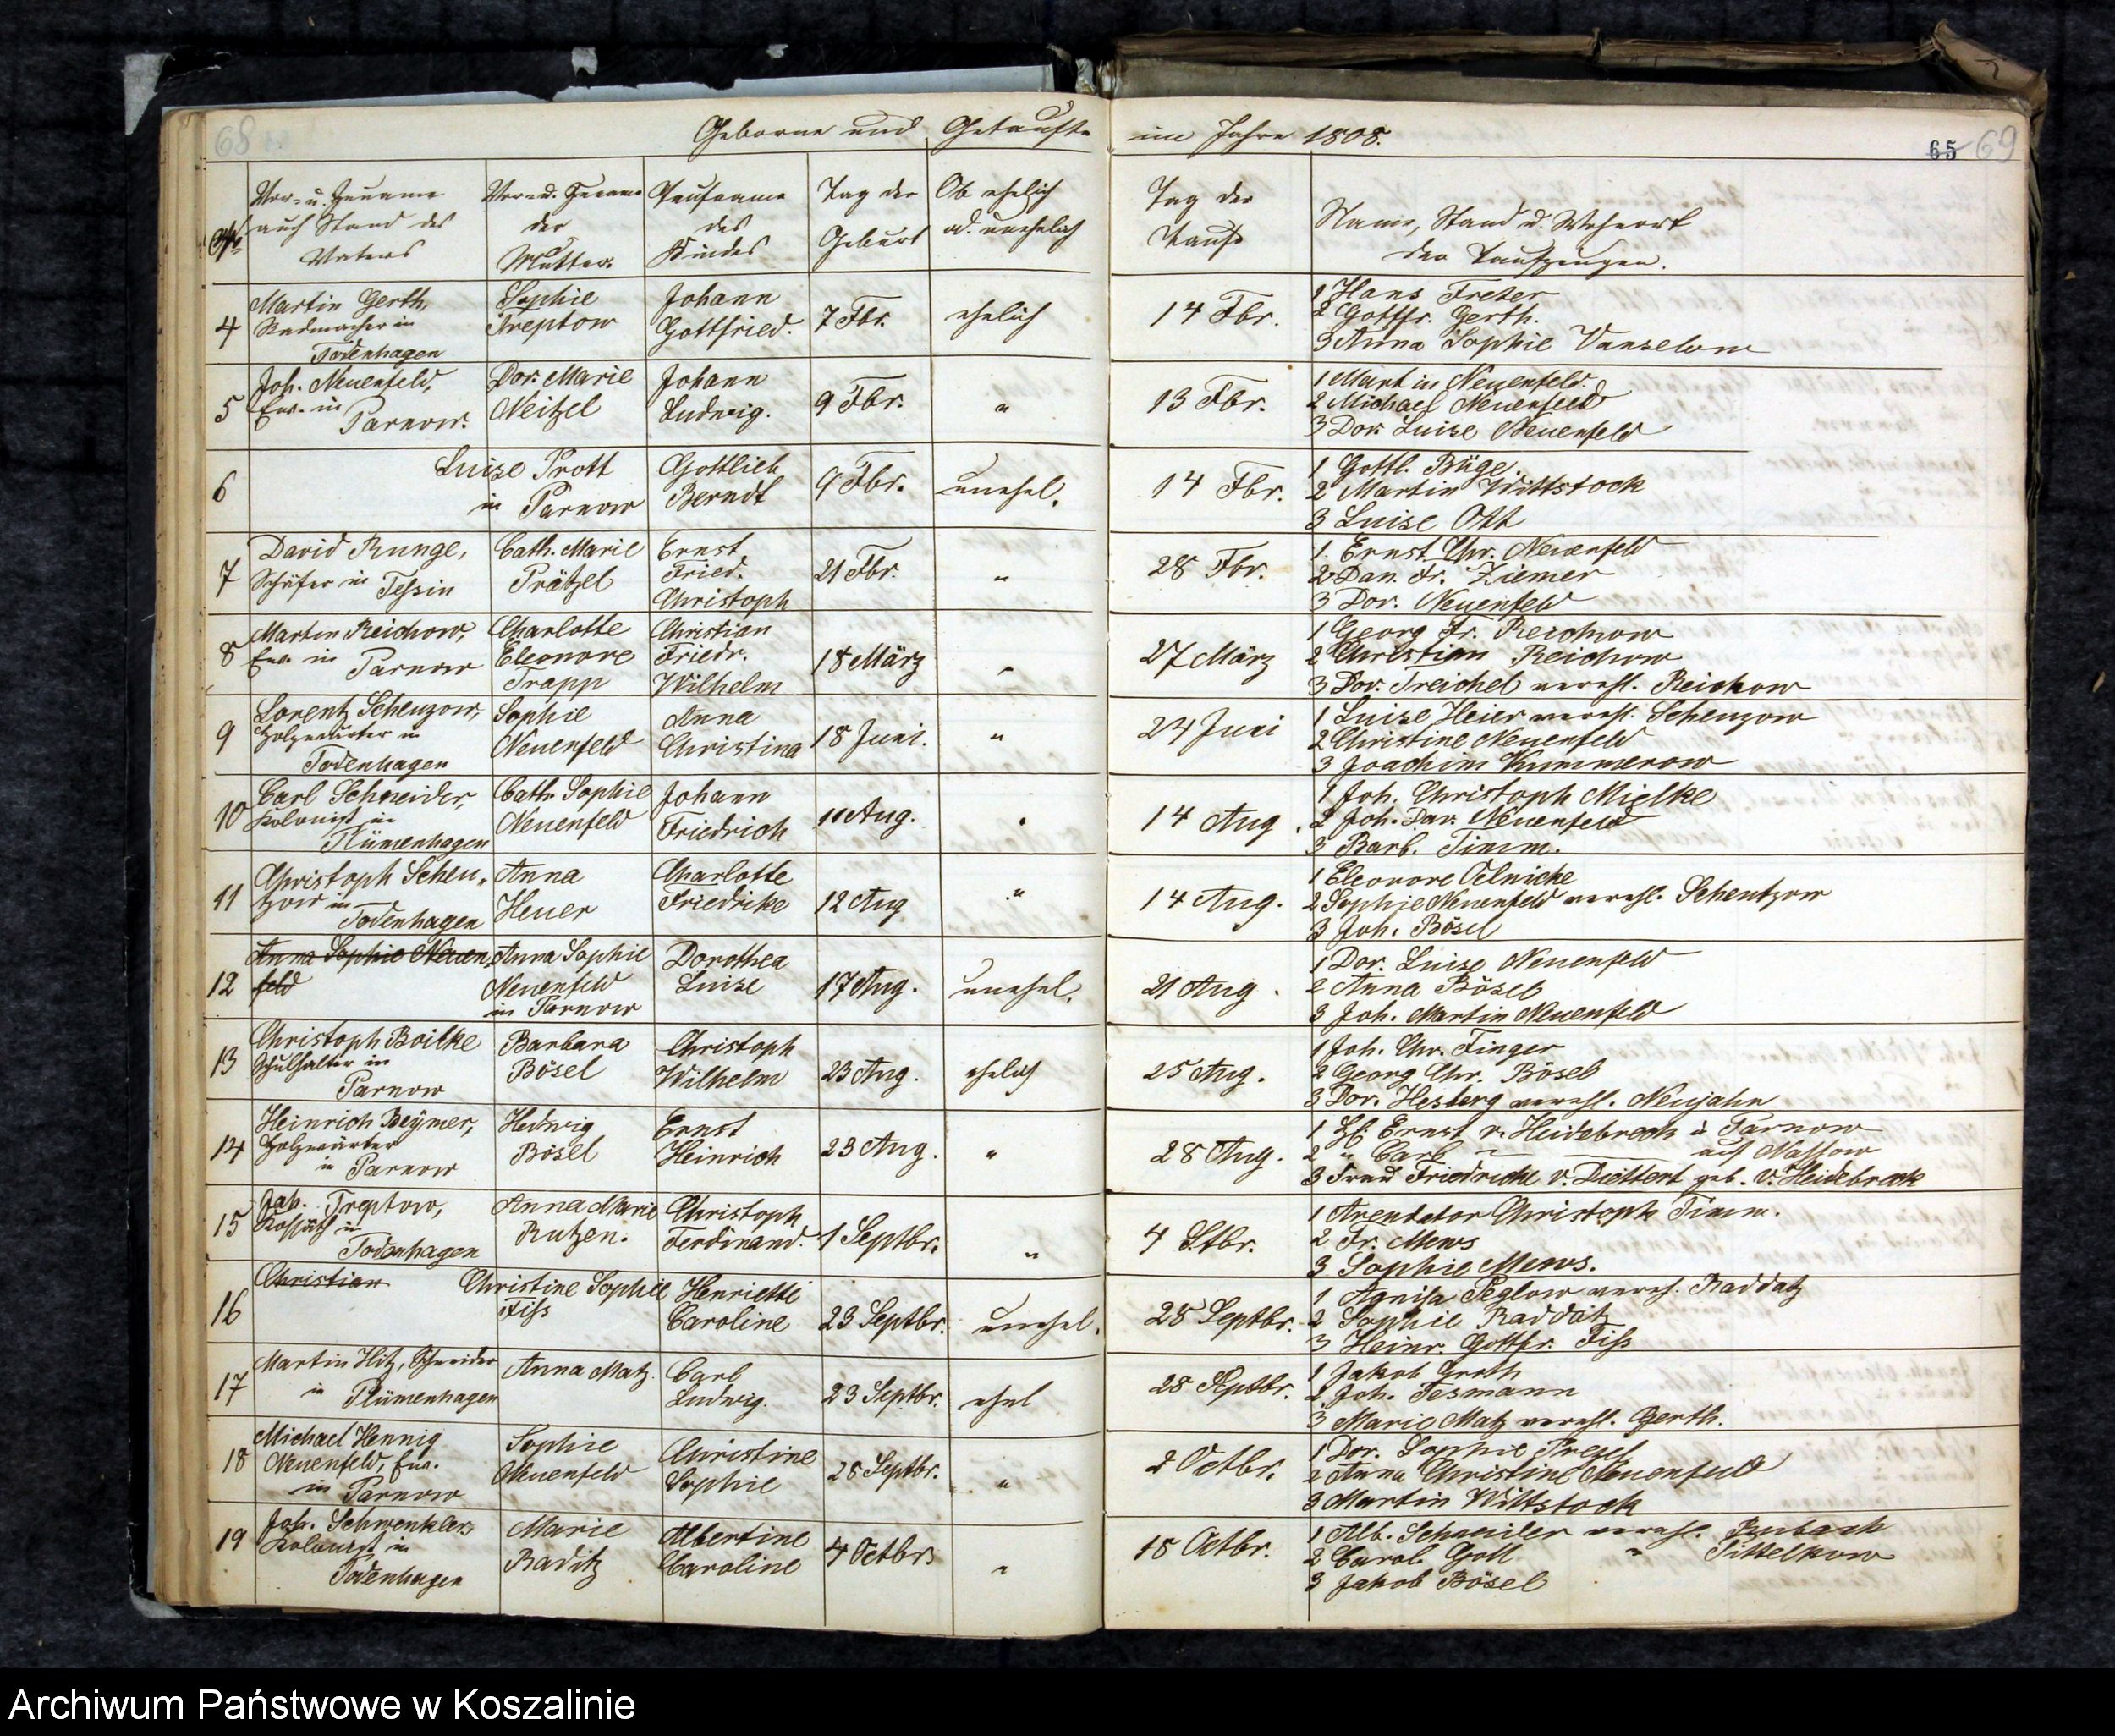 68
Geborne und Getaufte im Jahre 1808.
65 69
Vor- u. Zuname
auch Stand des
Vaters
Vor- u. Zuname
der
Mutter.
Taufname
des
Kindes
Tag der
Geburt
Ob ehelich
od. unehelich
Tag der
Taufe
Name, Stand u. Wohnort
der Taufzeugen.
4
Martin Gerth,
Radmacher in
Todenhagen
Sophie
Treptow
Johann
Gottfried.
7 Fbr.
ehelich
14 Fbr.
1 Hans Freter
2 Gottfr. Gerth.
3 Anna Sophie Vanselow
5
Joh. Neuenfeld,
Einw. in
Parnow.
Dor. Marie
Neitzel
Johann
Ludwig.
9 Fbr.
"
13 Fbr.
1 Martin Neuenfeld.
2 Michael Neuenfeld
3 Dor. Luise Neuenfeld
6
Luise Prott
in Parnow
Gottlieb
Berndt
9 Fbr.
unehel.
14 Fbr.
1 Gottl. Büge.
2 Martin Wittstock
3 Luise Ott
7
David Runge,
Schäfer in Teßin
Cath. Marie
Prätzel
Ernst
Fried.
Christoph
21 Fbr.
"
28 Fbr.
1. Ernst Chr. Neuenfeld
2 Dan. Fr. Ziemer
3 Dor. Neuenfeld
8
Martin Reichow,
Einw. in Parnow
Charlotte
Eleonore
Trapp
Christian
Friedr.
Wilhelm
18 März
"
27 März
1 Georg Fr. Reichow
2 Christian Reichow
3 Dor. Treichel verehl. Reichow
9
Lorentz Scheuzow,
Holzwärter in
Todenhagen
Sophie
Neuenfeld
Anna
Christina
18 Juni.
"
24 Juni
1 Luise Heier verehl. Scheuzow
2 Christine Neuenfeld
3 Joachim Kummerow
10
Carl Schneider,
Kolonist in
Plümenhagen
Cath. Sophie
Neuenfeld
Johann
Friedrich
11 Aug.
"
14 Aug.
1 Joh. Christoph Mielke
2 Joh. Dav. Neuenfeld
3 Barb. Timm.
11
Christoph Scheu-
tzow in
Todenhagen
Anna
Heuer
Charlotte
Friedrike
12 Aug
"
14 Aug.
1 Eleonore Oelnicke
2 Sophie Neuenfeld verehl. Scheutzow
3 Joh. Bösel
12
Anna Sophie Neuen-
feld
Anna Sophie
Neuenfeld
in Parnow
Dorothea
Luise
17 Aug.
unehel.
21 Aug.
1 Dor. Luise Neuenfeld
2 Anna Bösel
3 Joh. Martin Neuenfeld
13
Christoph Boilke
Schulhalter in
Parnow
Barbara
Bösel
Christoph
Wilhelm
23 Aug.
ehelich
25 Aug.
1 Joh. Chr. Finger
2 Georg Chr. Bösel
3 Dor. Hesberg verehl. Neujahn
14
Heinrich Beymer,
Holzwärter
in Parnow
Hedwig
Bösel
Ernst
Heinrich
23 Aug.
"
28 Aug.
1 H. Ernst v. Heidebreck in Parnow
2 " Carl " auf Naßow
3 Frau Friedricke v. Diettert geb. v. Heidebreck
15
Joh. Treptow,
Koßäth in
Todenhagen
Anna Marie
Rutzen.
Christoph
Ferdinand.
1 Septbr.
"
4 Stbr.
1 Arendator Christoph Timm.
2 Fr. Mews
3 Sophie Mews.
16
Christian
Christine Sophie
Fiß
Henriette
Caroline
23 Septbr.
unehel.
28 Septbr.
1 Agnisa Peglow verehl. Raddatz
2 Sophie Raddatz
3 Heinr. Gottfr. Fiß
17
Martin Hitz, Schneider
in Plümenhagen
Anna Matz.
Carl
Ludwig.
23 Septbr.
ehel
28 Septbr.
1 Jakob Groth
2 Joh. Tesmann
3 Marie Matz verehl. Gerth.
18
Michael Hennig
Neuenfeld, Einw.
in Parnow
Sophie
Neuenfeld
Christine
Sophie
28 Septbr.
"
2 Octbr.
1 Dor. Sophie Presel
2 Anna Christine Neuenfeld
3 Martin Wittstock
19
Joh. Schwenkler,
Kolonist in
Todenhagen
Marie
Raditz
Albertine
Caroline
4 Octbr.
"
18 Octbr.
1 Alb. Schmiler verehl. Burbach
2 Carol. Goll " Pittelkow
3 Jakob Bösel
Archiwum Państwowe w Koszalinie